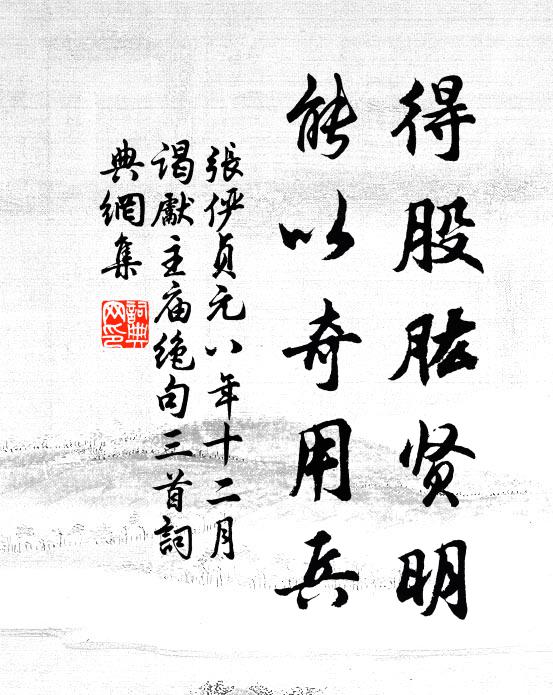 得股肱贤明
能以奇用兵
張俨貞元八年十二月
谒獻主庙绝句三首詞
典網集
詞典
网印